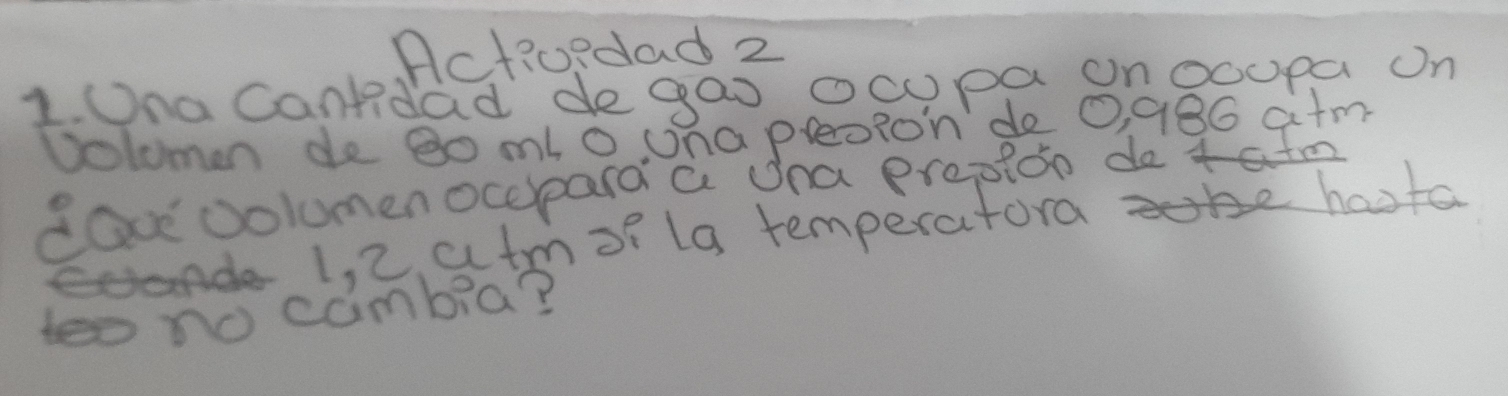 Actividad 2
1. Una cantidad de gas ocupa un ocupa un
Volumen de 80 mL a una presión de 0,986 atm
¿Qué volumen ocupará a una presión de 1 atm
cuando 1,2 atm si la temperatura sube hasta
no cambia?